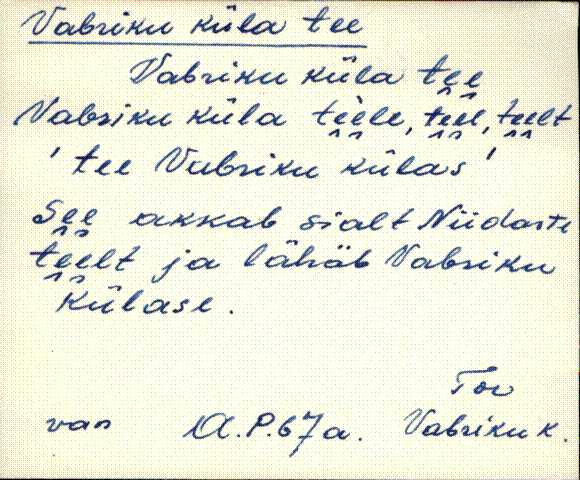 Vabriku küla tee
Vabriku küla te̮e̮
Vabriku küla te̮è̮le, te̮e̮l, te̮e̮lt
' tee Vabriku külas '
Se̮e̮ akkab sialt Niidaste
te̮e̮lt ja lähäb Vabriku
külase.
Tor
van A.P. 67 a. Vabriku k.